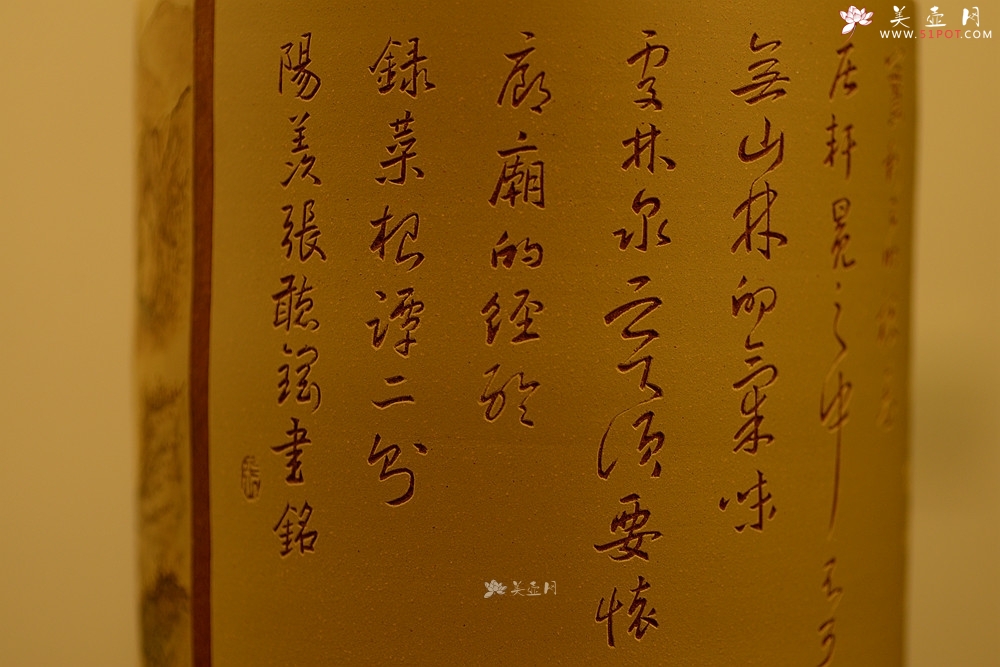 美壶网
WWW.51POT.COM
居軒冕之中不可
無山林的氣味
處林泉之下須要懷
廊廟的經綸
錄菜根譚二則
陽羨張聽書銘
美壶网